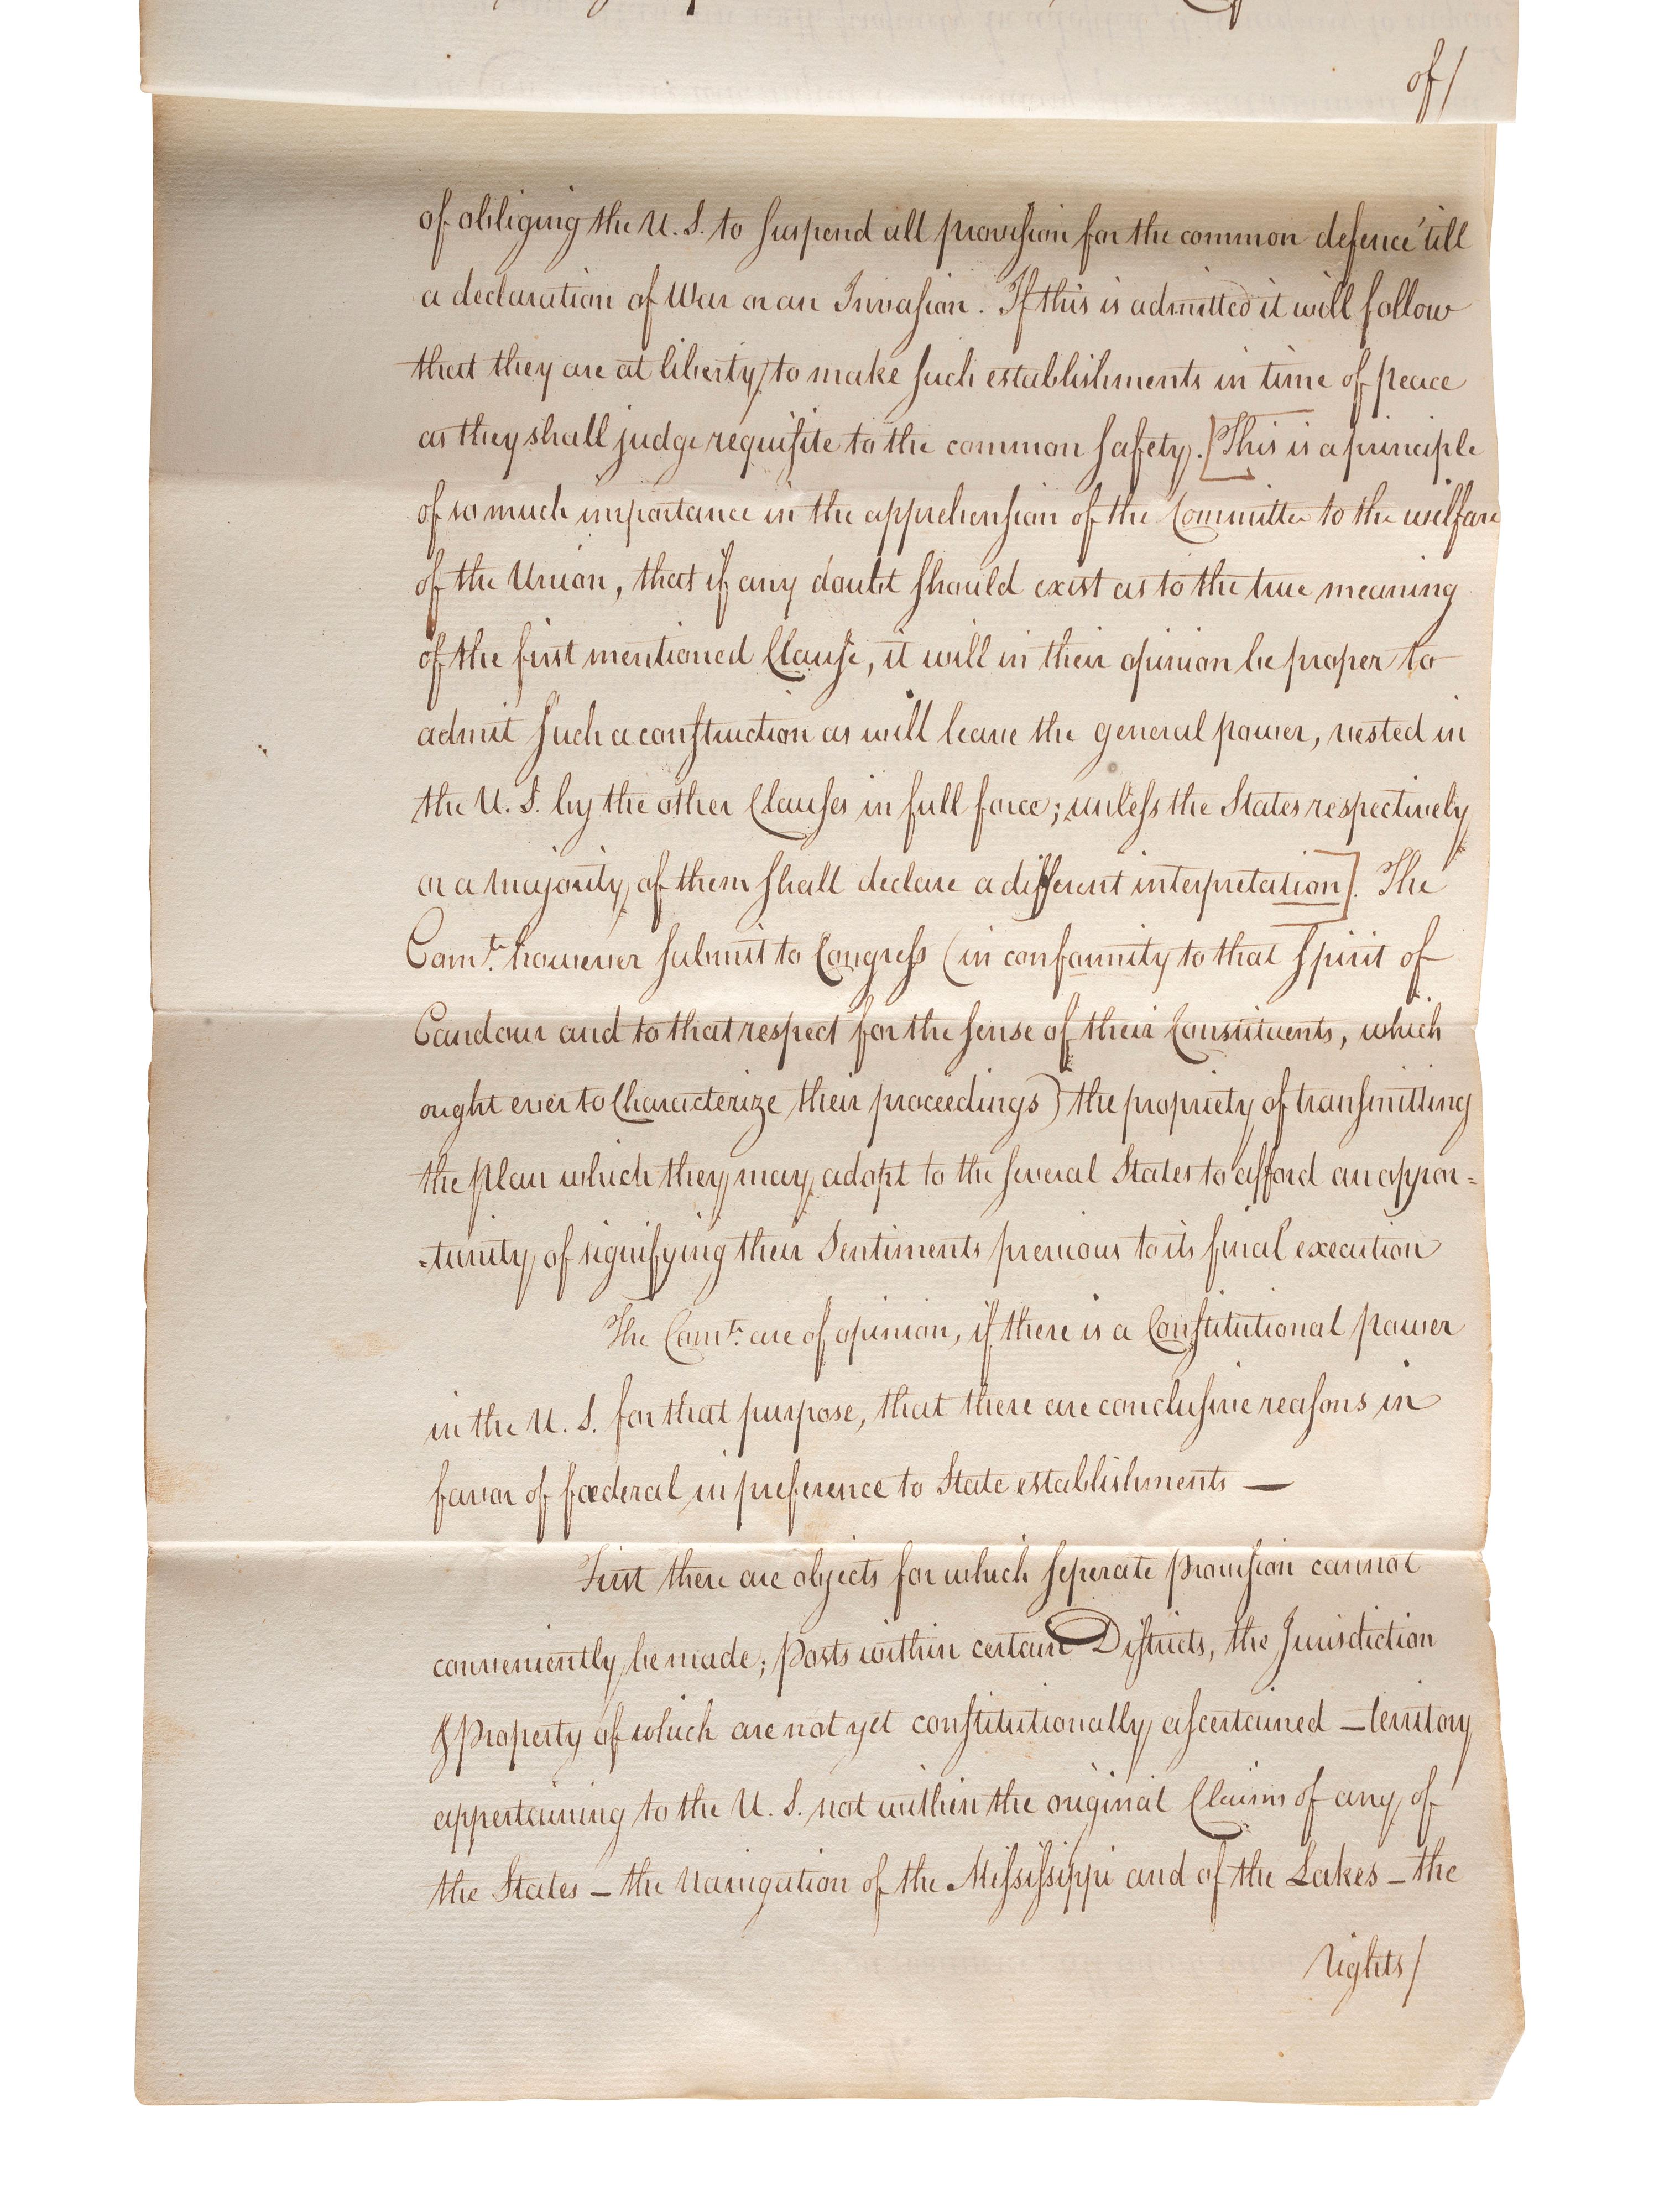 of/
of obliging the U. S. to suspend all provision for the common defence 'till
a declaration of War or an Invasion. If this is admitted it will follow
that they are at liberty, to make such establishments in time of peace
as they shall judge requisite to the common safety. [This is a principle
of so much importance in the apprehension of the Committee to the wellfare
of the Union, that if any doubt should exist as to the true meaning
of the first mentioned Clause, it will in their opinion be proper to
admit such a construction as will leave the general power, vested in
the U. S. by the other Clauses in full force; unless the States respectively
or a majority of them shall declare a different interpretation]. The
Comte. however submit to Congress (in conformity to that spirit of
Candour and to that respect for the sense of their Constituents, which
ought ever to Characterize their proceedings) the propriety of transmitting
the plan which they may adopt to the several States to afford an oppor=
=tunity of signifying their Sentiments previous to its final execution
The Comte. are of opinion, if there is a Constitutional power
in the U. S. for that purpose, that there are conclusive reasons in
favor of fœderal in preference to State establishments —
First there are objects for which seperate provision cannot
conveniently be made; posts within certain Districts, the Jurisdiction
& Property of which are not yet constitutionally ascertained — territory
appertaining to the U. S. not within the original Claim of any of
the States — the Navigation of the Mississippi and of the Lakes — the
rights/